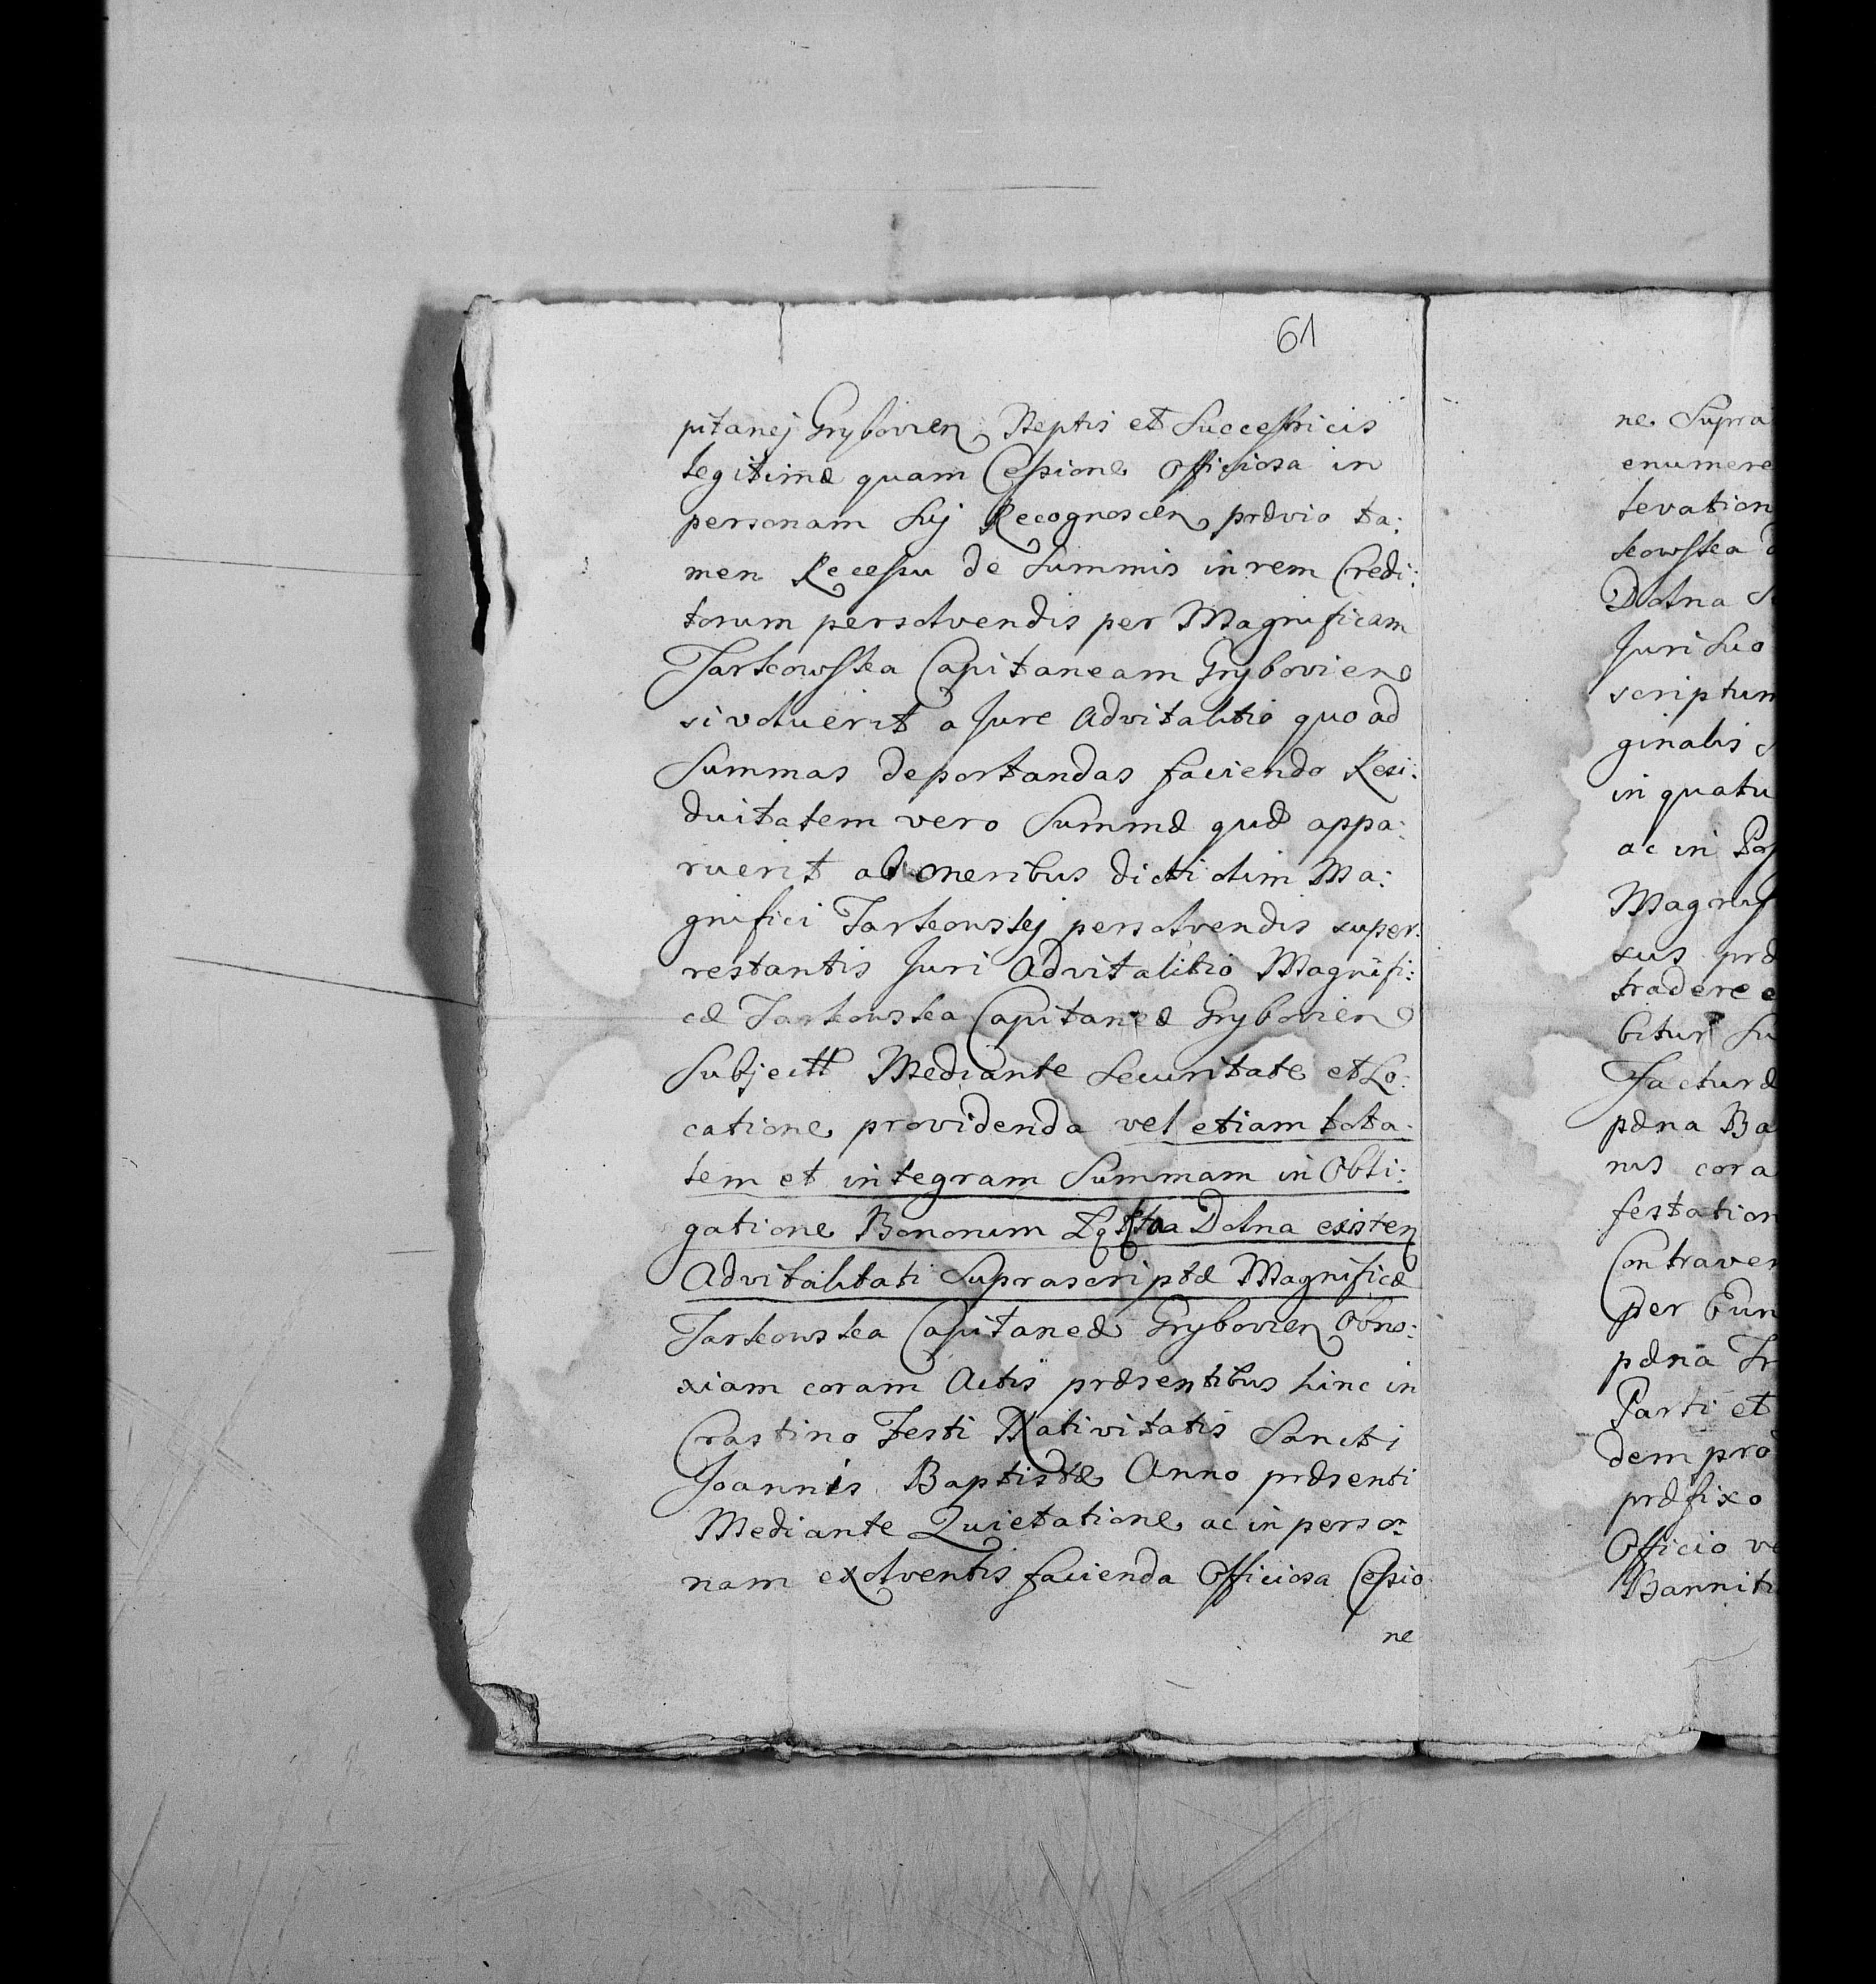 61
pitanej Grybovien, Neptis et Successricis
legitimæ quam Cessione Officiosa in
personam Suj Recognoscen prævio ta:
men Recessu de Summis in rem Credi:
torum persolvendis per Magnificam
Tarkowska Capitaneam Grybovien
si voluerit a Jure Advitalitio quo ad
Summas deportandas faciendo Resi:
duitatem vero Summæ quæ appa:
ruerit ab oneribus dicti olim Ma:
gnifici Tarkowskj persolvendis super:
restantis Juri Advitalitio Magnifi:
cæ Tarkowska Capitaneæ Grybovien
Subject Mediante Securitate et Lo:
catione providenda vel etiam tota:
lem et integram Summam in Obli:
gatione Bonorum Dolna existen
Advitalitati Suprascriptæ Magnificæ
Tarkowska Capitaneæ Grybovien Obno:
xiam coram Actis præsentibus hinc in
Crastino Festi Nativitatis Sancti
Joannis Baptistæ Anno præsenti
Mediante Quietatione ac in perso:
nam exolventis facienda Officiosa Cessio
ne
ne Supra
enumere
levation
kowska
Dolna
Juri Suo
scriptum
ginalis
in quatu
ac in
Magnif
sus præ
tradere
bitur Su
Facturæ
pæna Ba
nis cora
festation
Contraven
per Eun
pæna
Parti et
dem pro
præfixo
Officio ve
Bannit